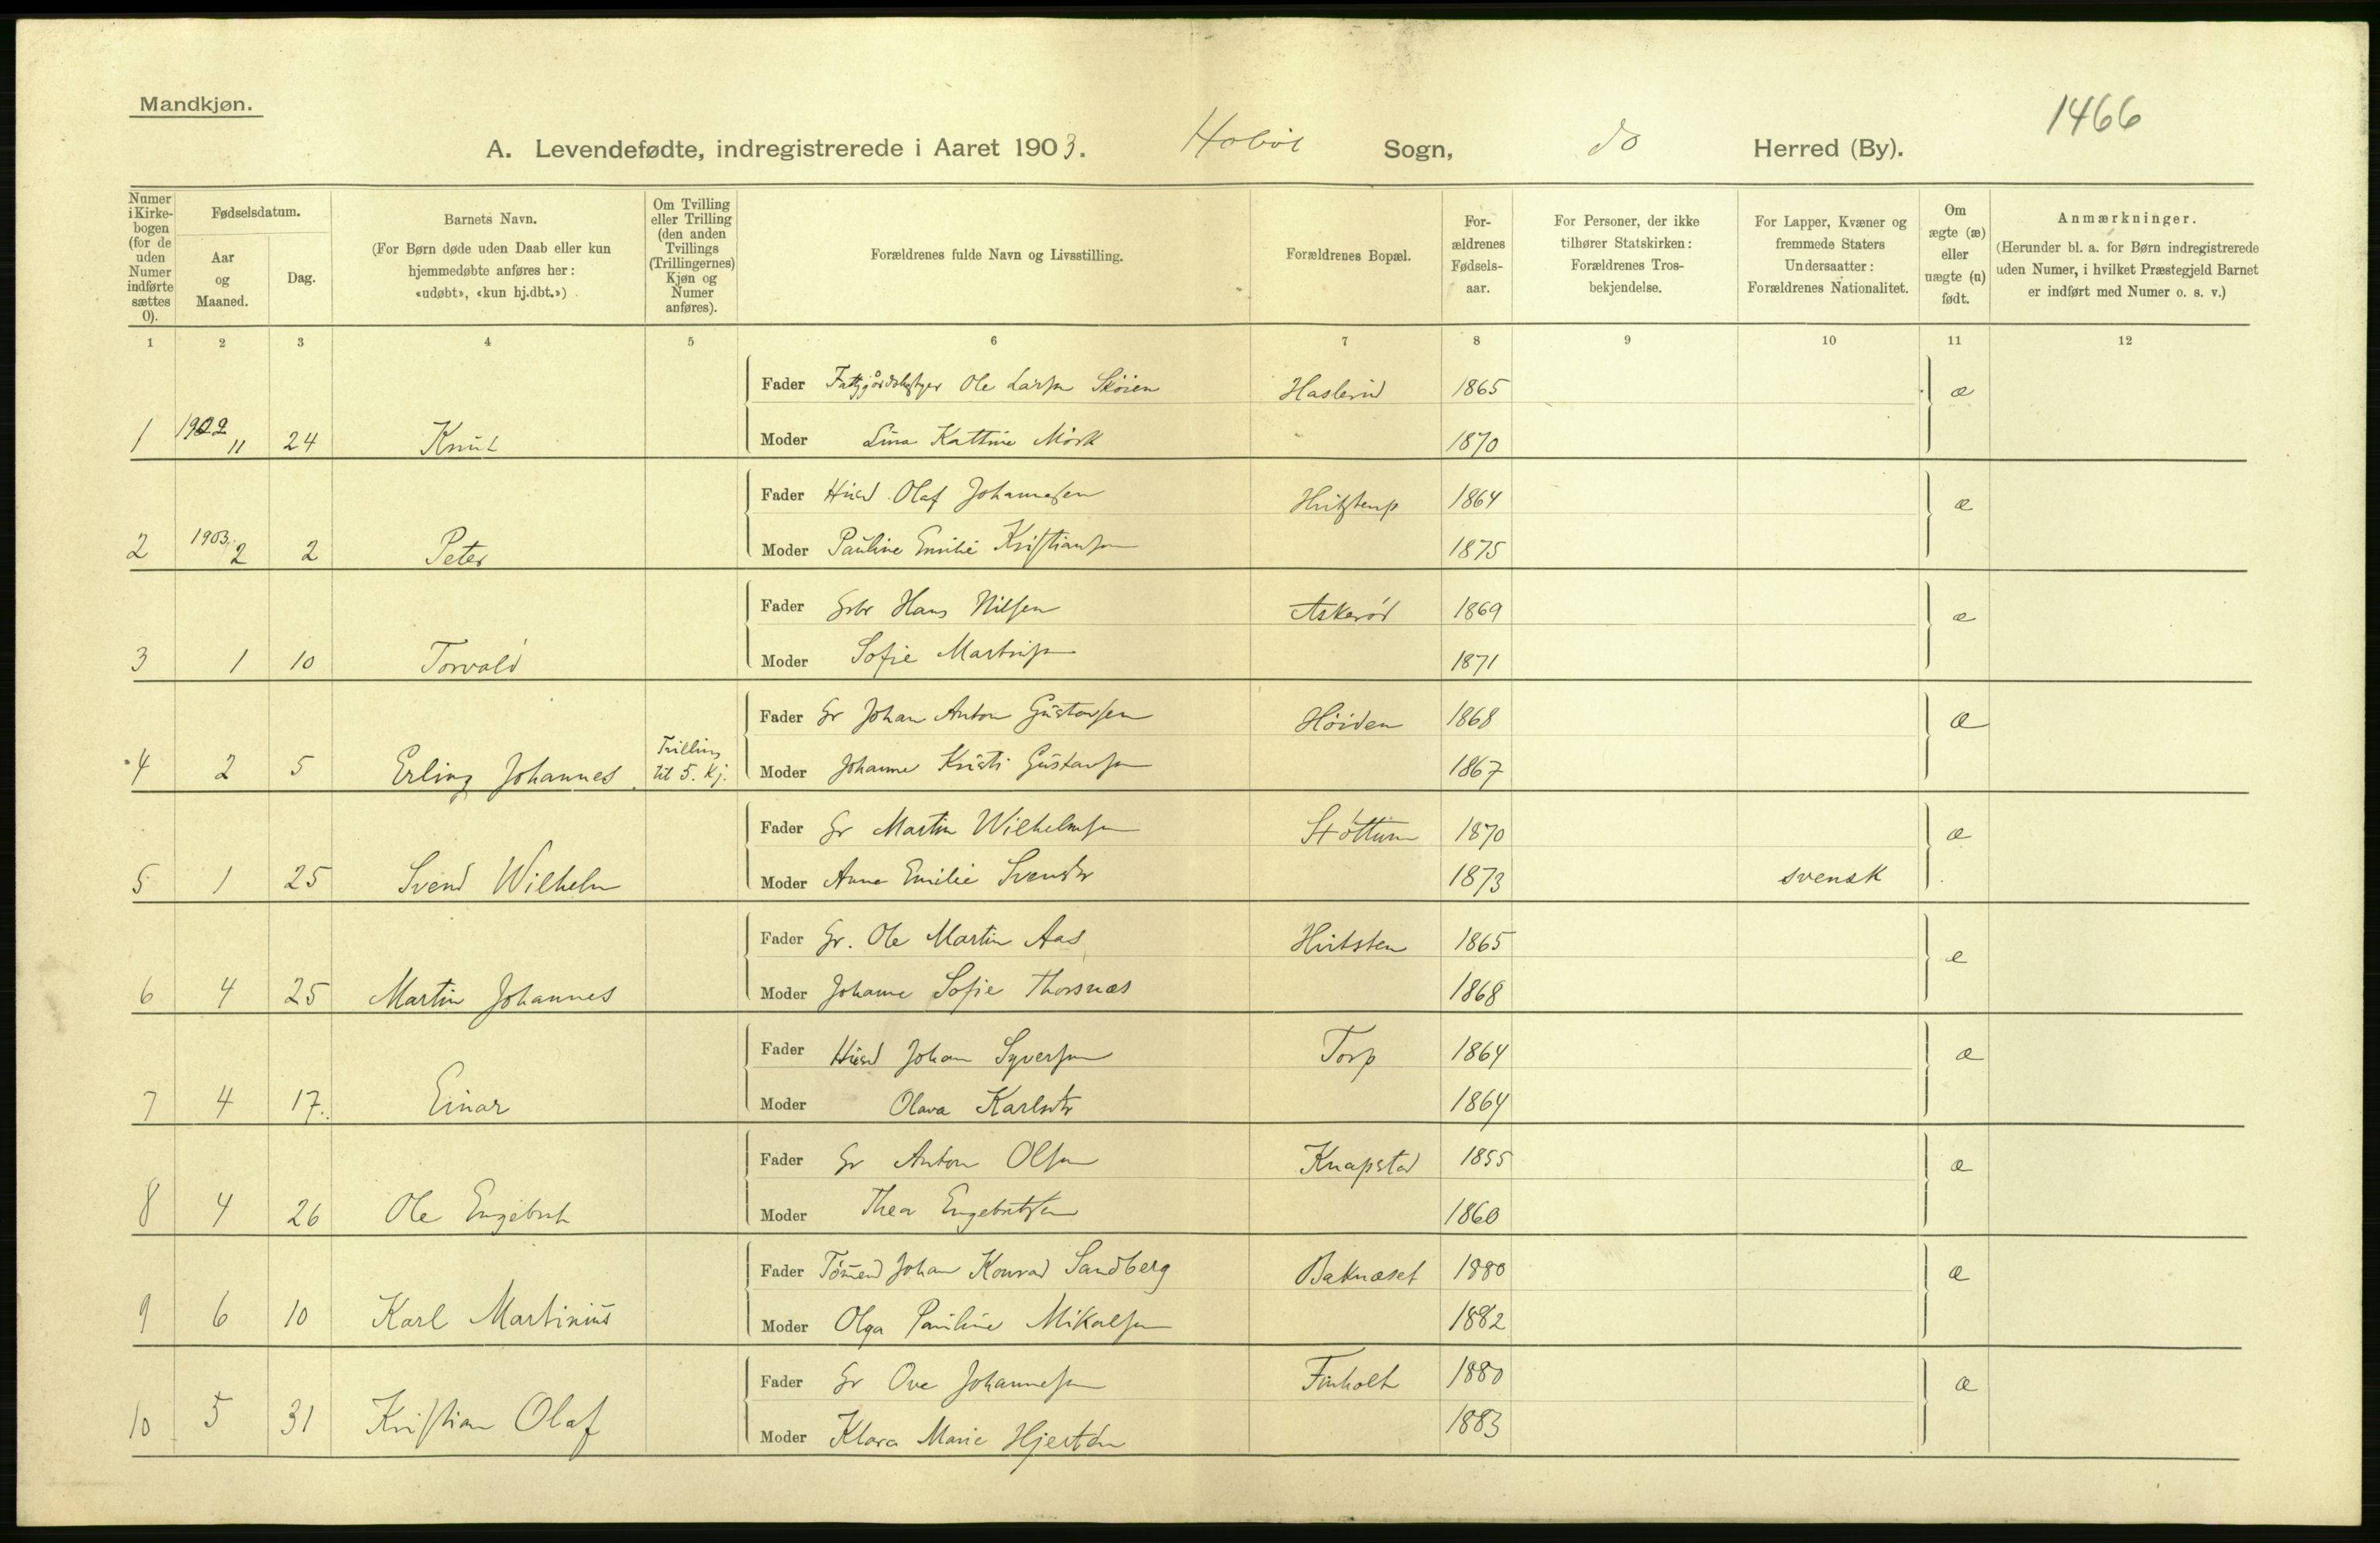 Mandkjøn.
1466
A. Levendefødte, indregistrerede i Aaret 1903. Hobøl Sogn, do Herred (By).
Numer i Kirkebogen (for de uden Numer indførte sættes 0).
Fødselsdatum.
Aar og Maaned.
Dag.
Barnets Navn.
(For Børn døde uden Daab eller kun hjemmedøbte anføres her: «udøbt», «kun hj.dbt.»)
Om Tvilling eller Trilling (den anden Tvillings (Trillingernes) Kjøn og Numer anføres).
Forældrenes fulde Navn og Livsstilling.
Forældrenes Bopæl.
Forældrenes Fødselsaar.
For Personer, der ikke tilhører Statskirken: Forældrenes Trosbekjendelse.
For Lapper, Kvæner og fremmede Staters Undersaatter: Forældrenes Nationalitet.
Om ægte (æ) eller uægte (u) født.
Anmærkninger.
(Herunder bl. a. for Børn indregistrerede uden Numer, i hvilket Præstegjeld Barnet er indført med Numer o. s. v.)
1 2 3 4 5 6 7 8 9 10 11 12
Fader Ole Larsen Sköien Haslerud 1865 æ
1 1902 11 24 Knut Moder Lina Kattrine Mörk 1870
Fader Husm Olaf Johannesen 1864 æ
2 1903 2 2 Peter Moder Pauline Emilie Kristiansen 1875
Fader Gbr Hans Nilsen Askeröd 1869 æ
3 1 10 Torvald Moder Sofie Martinsen 1871
Fader Gr Johan Anton Gustavsen Höiden 1868 æ
4 2 5 Erling Johannes Trilling til 5. Kj. Moder Johanne Kristi Gustavsen 1867
Fader Gr Martin Wilhelmsen Støttum 1870 æ
5 1 25 Svend Wilhelm Moder Anna Emilie Svendsdr 1873 svensk
Fader Gr. Ole Martin Aas Hvitsten 1865 æ
6 4 25 Martin Johannes Moder Johanne Sofie Thorsnæs 1868
Fader Husm Johan Syversen Torp 1864 æ
7 4 17. Einar Moder Olava Karlsdtr 1864
Fader Gr Anton Olsen Knapstad 1855 æ
8 4 26 Ole Engebret Moder Thea Engebretsen 1860
Fader Tömmerm Johan Konrad Sandberg Baknæset 1880 æ
9 6 10 Karl Martinius Moder Olga Pauline Mikalsen 1882
Fader Gr Ove Johannesen Finholt 1880 æ
10 5 31 Kristian Olaf Moder Klara Marie Hjertén 1883